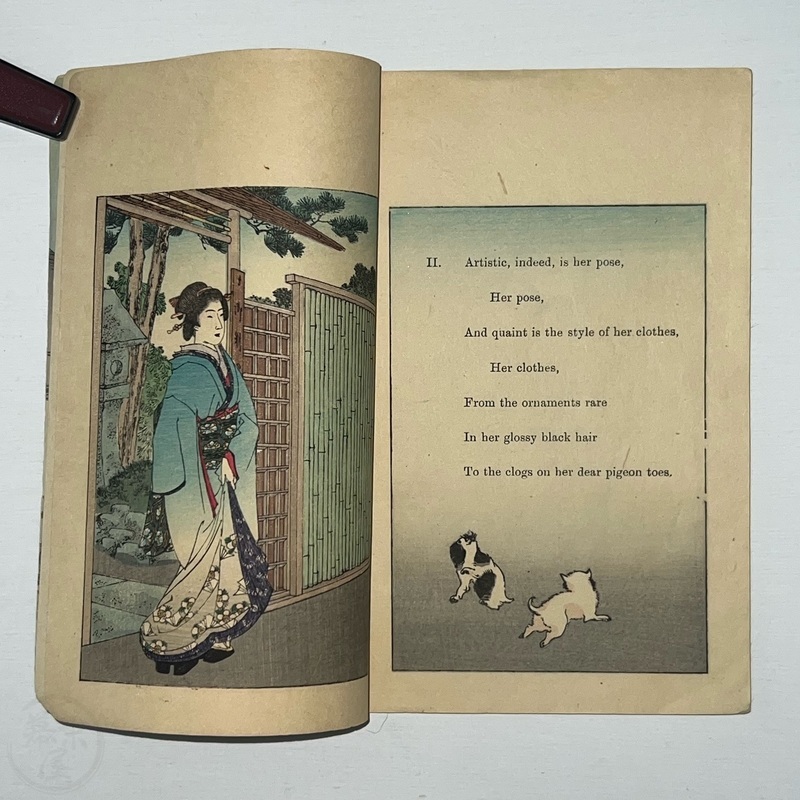 II. Artistic, indeed, is her pose,
Her pose,
And quaint is the style of her clothes,
Her clothes,
From the ornaments rare
In her glossy black hair
To the clogs on her dear pigeon toes.